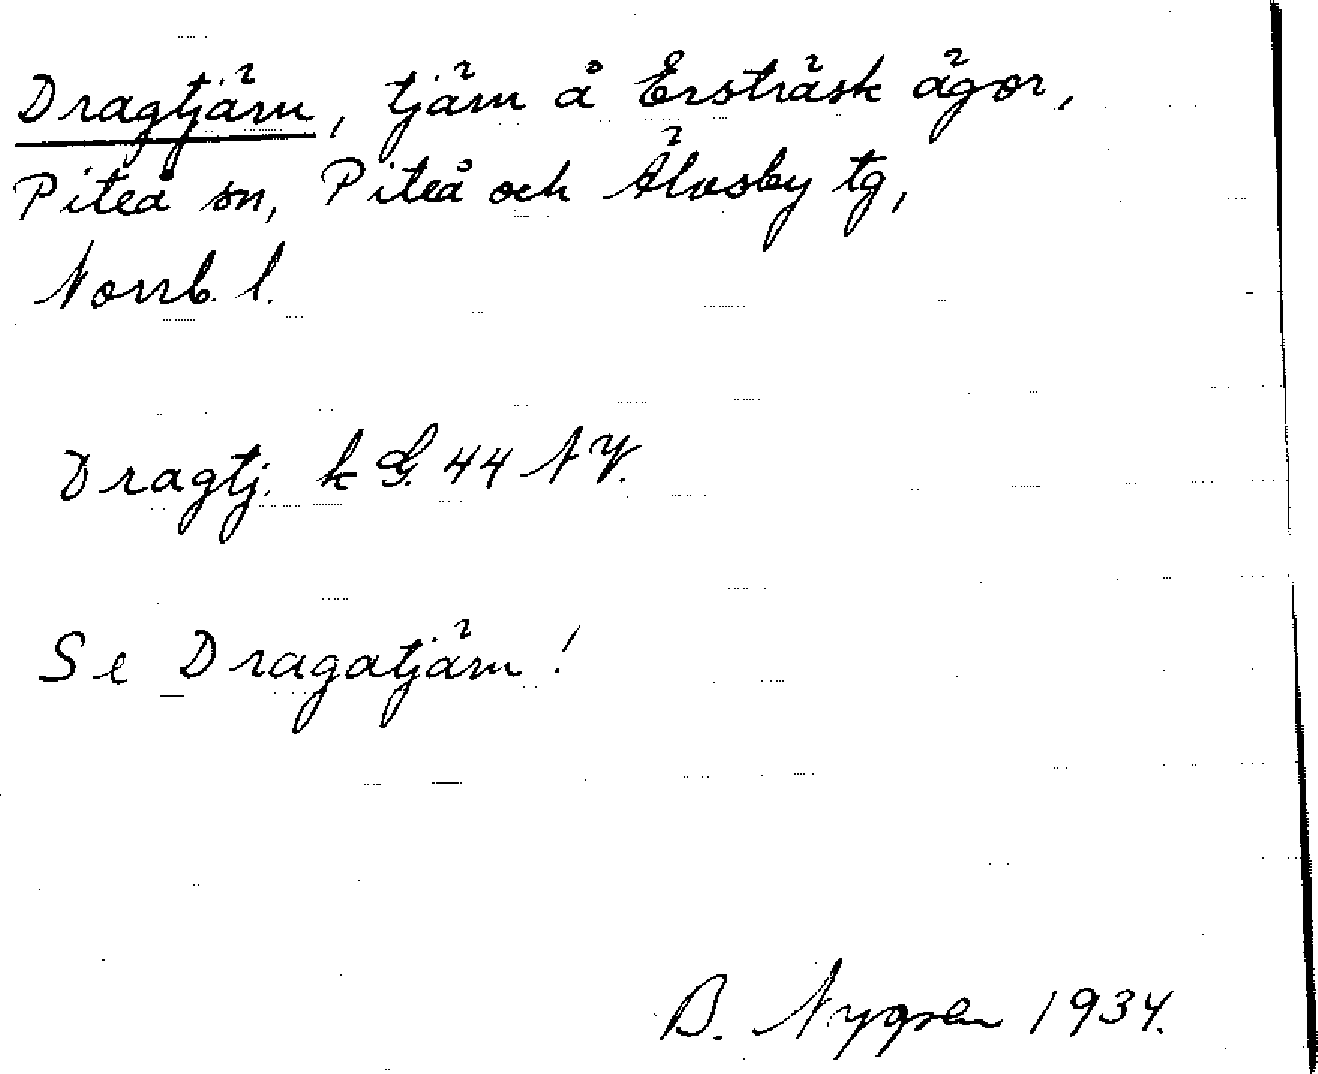 Dragtjärn, tjärn å Ersträsk ägor,
Piteå sn, Piteå och Älvsby tg,
Norrb. l.
Dragtj. k G. 44 NV.
Se Dragatjärn!
B. Nygren 1934.